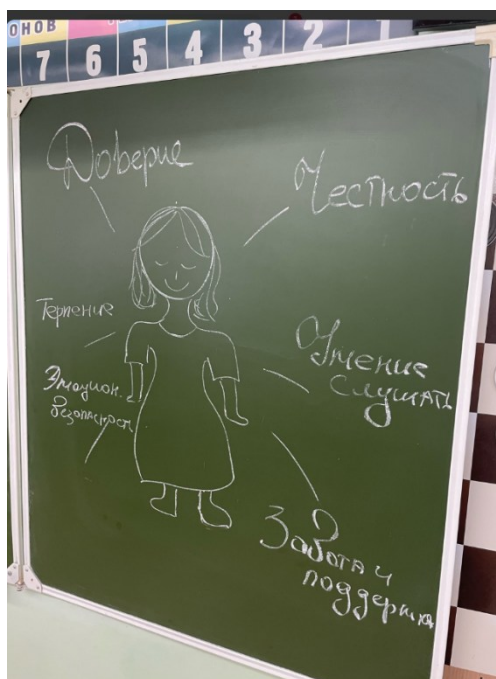 ОНОВ
7 6 5 4 3 2 1
Доверие
Честность
Терпение
Умение
слушать
Эмоцион.
безопасность
Забота и
поддержка